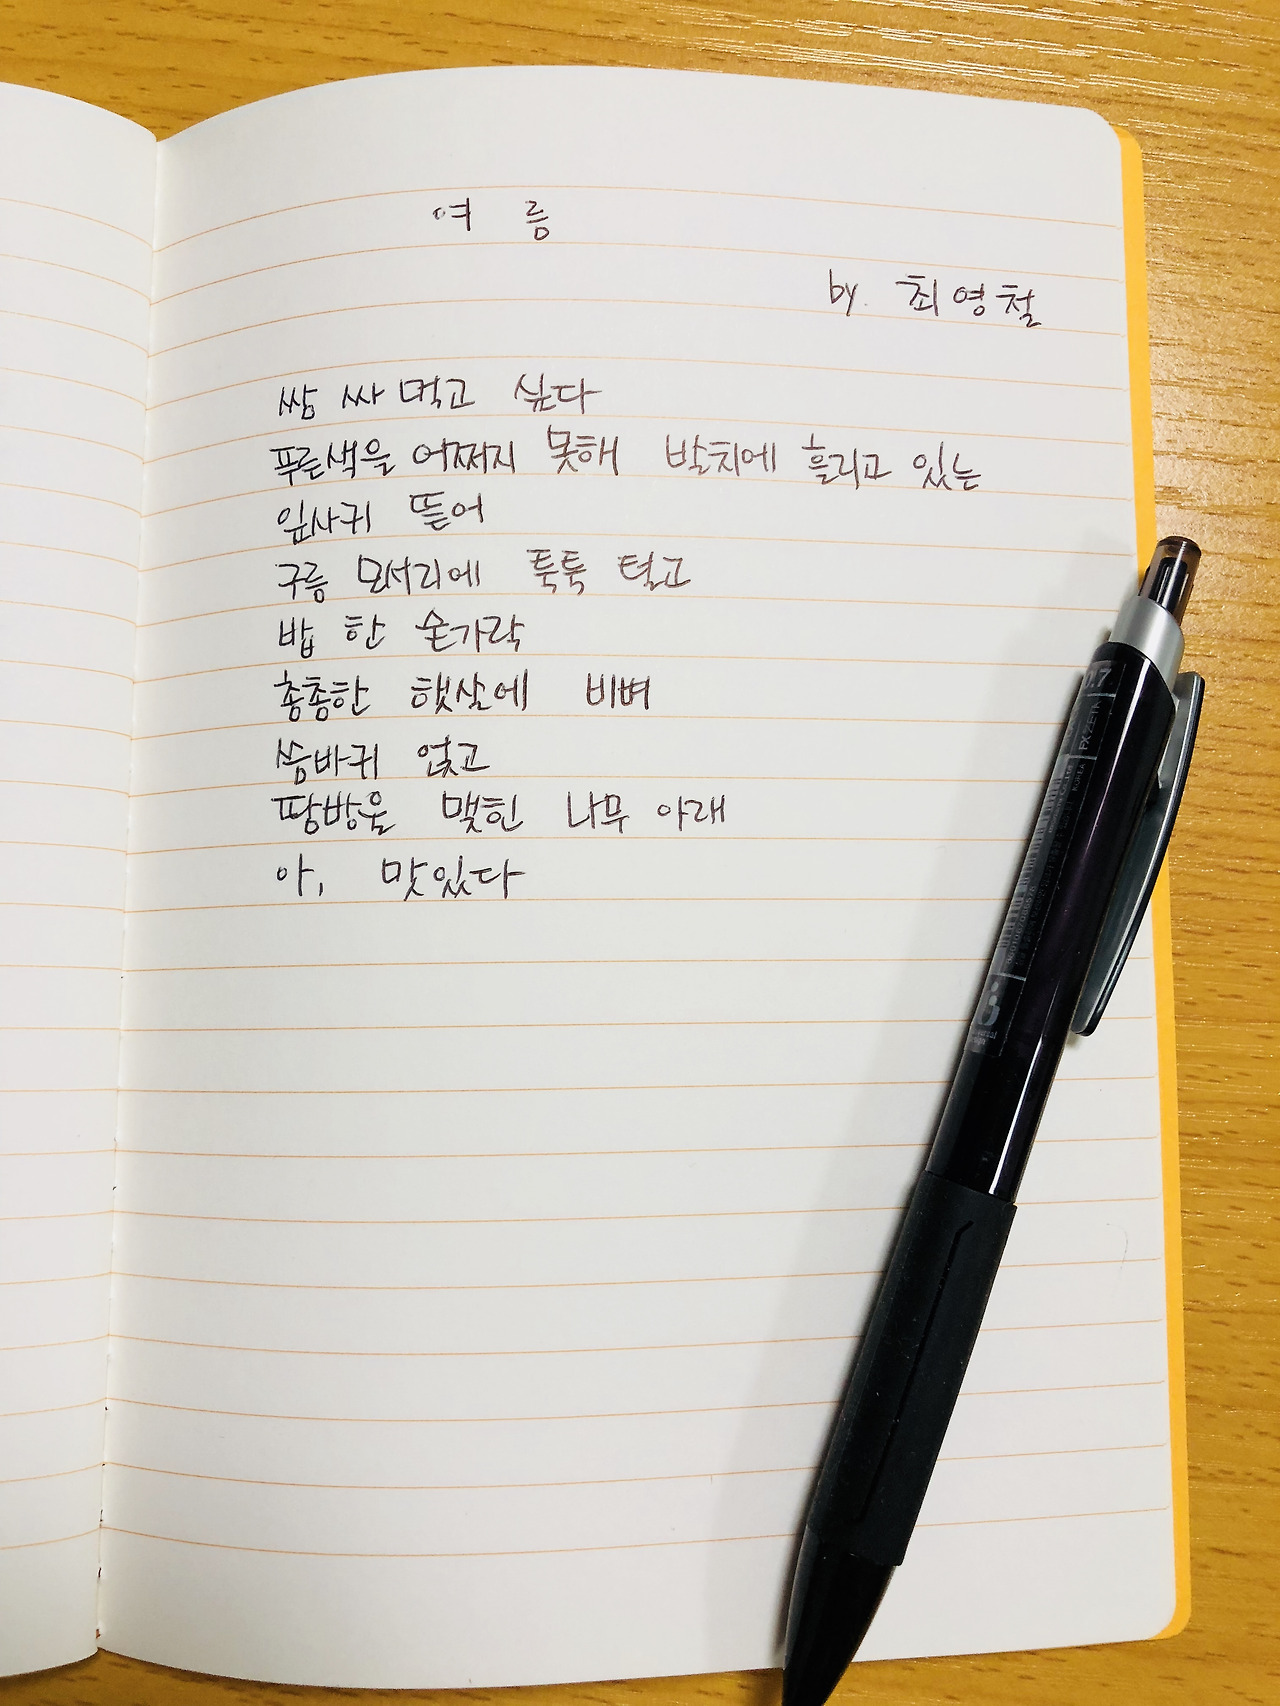 여 름
by. 최영철
쌈 싸 먹고 싶다
푸른색을 어쩌지 못해 발치에 흘리고 있는
잎사귀 뜯어
구름 모서리에 툭툭 털고
밥 한 숟가락
총총한 햇살에 비벼
씀바귀 얹고
땀방울 맺힌 나무 아래
아, 맛있다
0.7
FX ZETA
KOREA